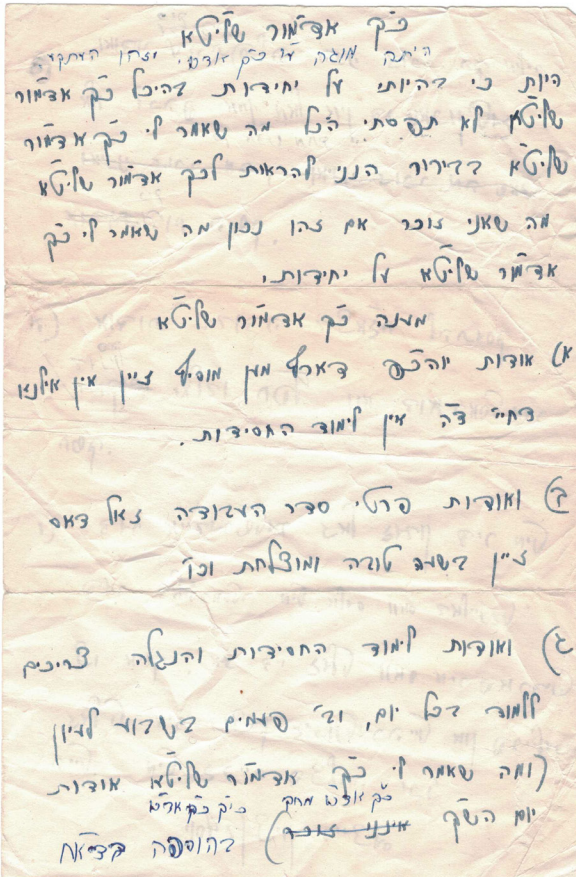 כ"ק אדמו"ר שליט"א
היתה מוגה ע"י כ"ק אדמו"ר וזהו העתקה
היות כי בהיותי על יחידות בהיכל כ"ק אדמו"ר
שליט"א לא תפסתי הכל מה שאמר לי כ"ק אדמו"ר
שליט"א בבירור הנני להראות לכ"ק אדמו"ר שליט"א
מה שאני זוכר אם זהו נכון מה שאמר לי כ"ק
אדמו"ר שליט"א על יחידותי.
מענה כ"ק אדמו"ר שליט"א
א) אודות יוהכ"פ דארף מען מוסיף זיין אין אילנו
דחיי ד"ה אין לימוד החסידות.
ב) ואודות פרטי סדר העבודה זאל דאס
זיין בשעה טובה ומוצלחת וכו'
ג) ואודות לימוד החסידות והנגלה צריכים
ללמוד בכל יום, וב' פעמים בשבוע לעיון
(ומה שאמר לי כ"ק אדמו"ר שליט"א אודות
כ"ק אד"ש מחק
יום הש"ק אינני זוכר) בהוספה בצד"א